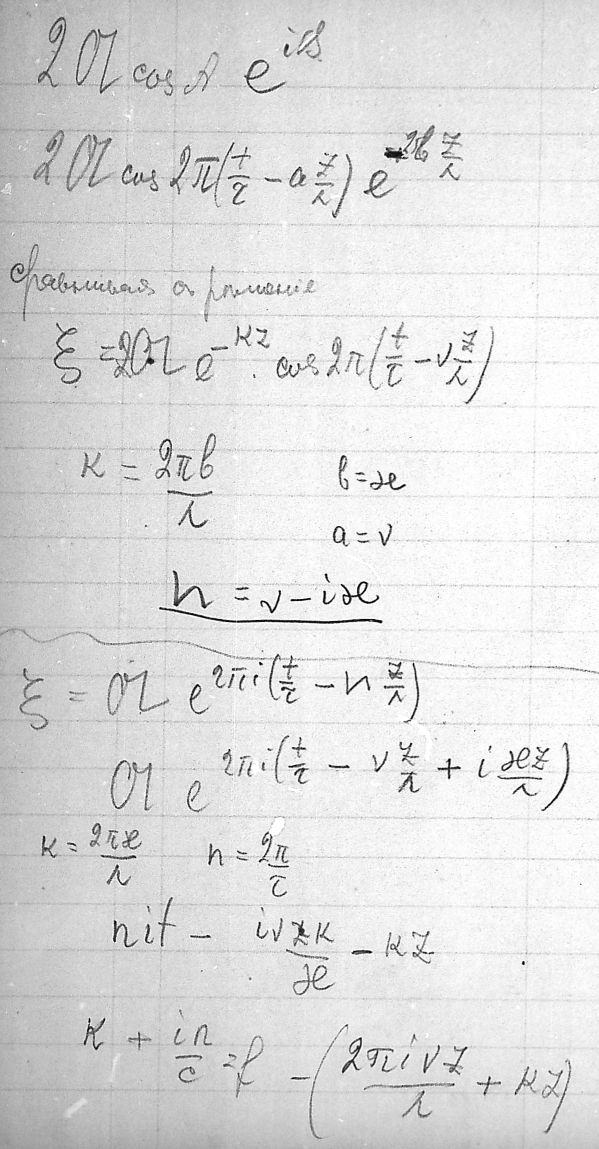 2𝔄 cos A e^{iB}
2𝔄 cos 2π(t/τ − a z/λ) e^{−2b z/λ}
сравнивая
ξ = 2𝔄 e^{−κz} · cos 2π(t/τ − ν z/λ)
κ = 2πb/λ b = æ
a = ν
n = ν − iæ
ξ = 𝔄 e^{2πi(t/τ − n z/λ)}
𝔄 e^{2πi(t/τ − ν z/λ + i æz/λ)}
κ = 2πæ/λ n = 2π/τ
nit − iνzκ/æ − κz
κ + in/c = f − (2πiνz/λ + κz)